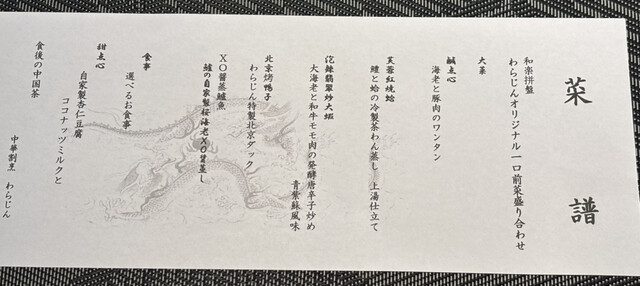 菜譜
和楽拼盤
わらじんオリジナル一口前菜盛り合わせ
大菜
鹹点心
海老と豚肉のワンタン
芙蓉紅焼蛤
鱧と蛤の冷製茶わん蒸し 上湯仕立て
泡辣翡翠炒大蝦
大海老と和牛モモ肉の発酵唐辛子炒め
青紫蘇風味
北京烤鴨子
わらじん特製北京ダック
XO醤蒸鱸魚
鱸の自家製桜海老XO醤蒸し
食事
選べるお食事
甜点心
自家製杏仁豆腐
ココナッツミルクと
食後の中国茶
中華割烹 わらじん